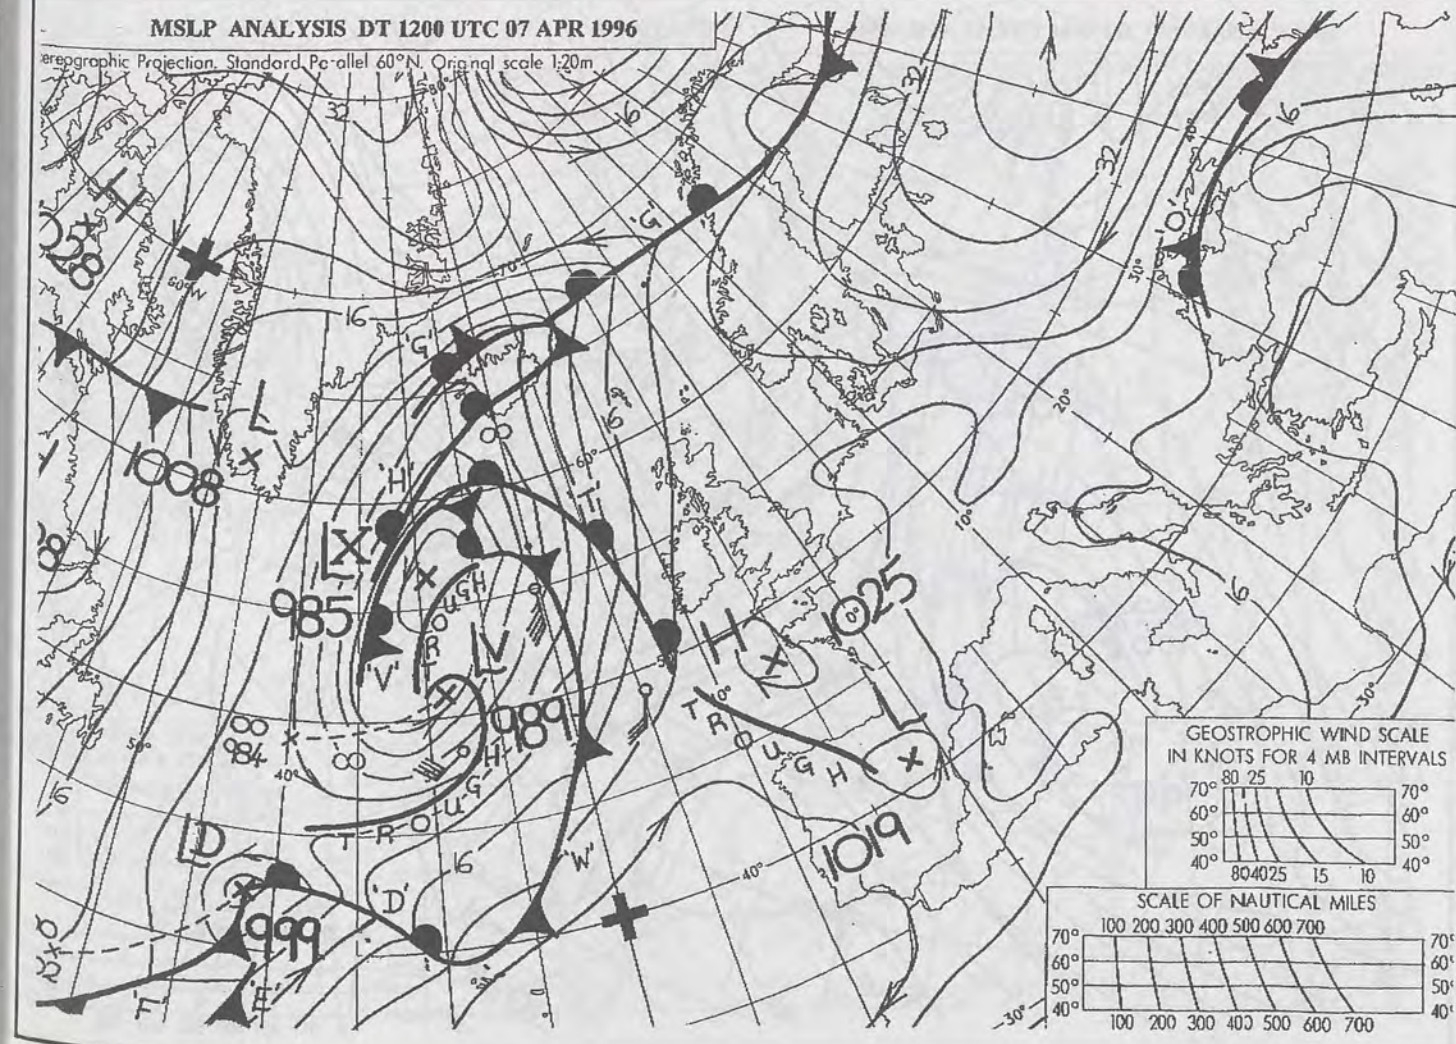 MSLP ANALYSIS DT 1200 UTC 07 APR 1996
ereographic Projection. Standard Parallel 60°N. Original scale 1:20m
80°
32
16
32
32
40°
16
H
28
60°W
'G'
70°
'O'
30°
16
'G'
L
1008
20°
16
60°
'H'
'T'
LX
10°
1025
16
985
TROUGH
'V'
LV
H
50°
989
984
50°
40°
10°
TROUGH
L
30°
1019
16
TROUGH
LD
16
'W'
40°
'D'
999
'F'
'E'
30°
GEOSTROPHIC WIND SCALE
IN KNOTS FOR 4 MB INTERVALS
80 25 10
70° 70°
60° 60°
50° 50°
40° 40°
80 40 25 15 10
SCALE OF NAUTICAL MILES
100 200 300 400 500 600 700
70° 70°
60° 60°
50° 50°
40° 40°
100 200 300 400 500 600 700